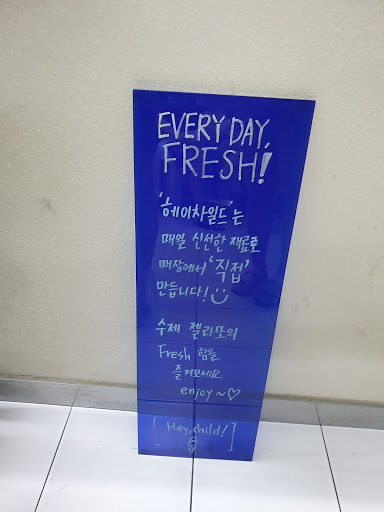 EVERY DAY,
FRESH!
'헤이차일드'는
매일 신선한 재료로
매장에서 '직접'
만듭니다!
수제 젤라또의
Fresh 함을
즐겨보세요
enjoy~♡
[Hey, child!]